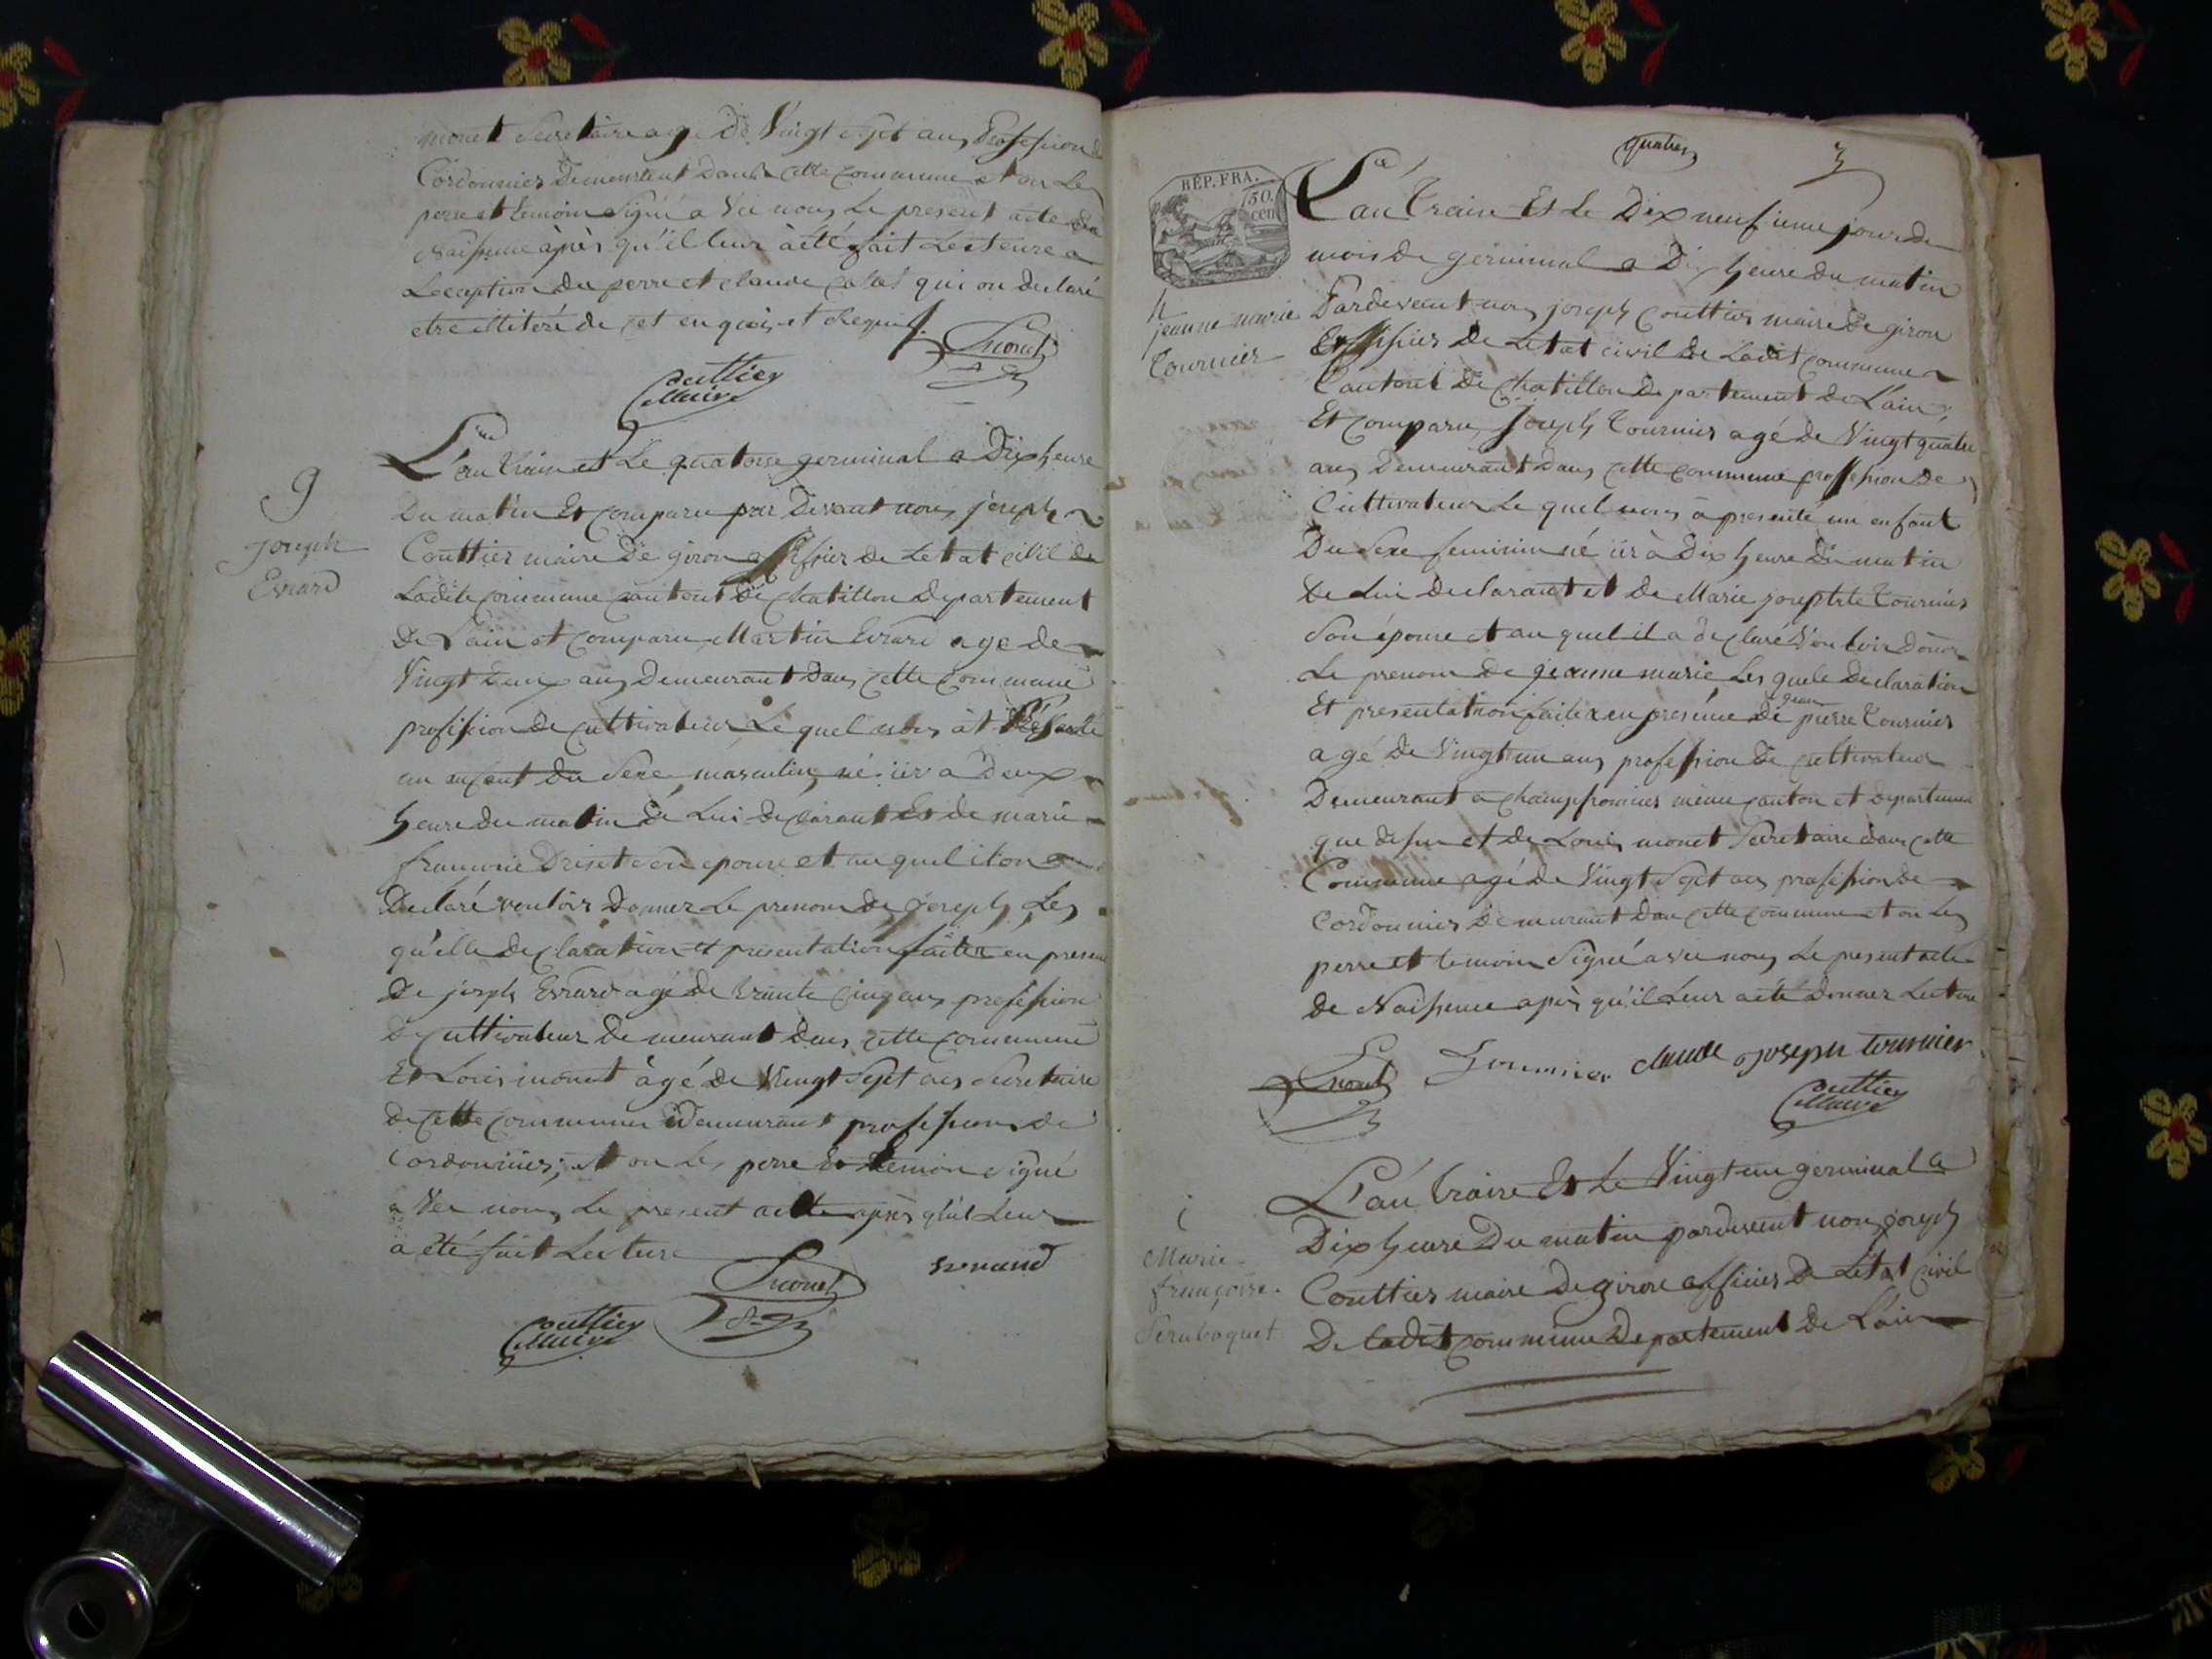 monet Secretaire age De Vingt Sept ans Profession de
Cordonnier Demeurent Dans cette commune et on Les
perre et temoin Signé a Vec nous Le present acte de
Naissence àprès qu'il leur à été fait Lecteure a
Leception du perre et claude qui on declaré
etre illiteré de cet en quis
Monet
Couttier
Maire
L'an traise et Le quatorse germinal a Dix heure
9
Joseph
Evrard
Du matin Et comparu par Devant nous joseph
Couttier maire De giron officier de Letat civil de
Ladite commune cantont De chatillon Departement
De Lain et comparu Martin Evrard age de
Vingt Deux ans Demeurant Dans cette commune
profission de cultivateur Le quel nous àt Présenté
un enfant du Sexe masculin né ier a Deux
heure du matin de Lui declarant Et de marie
francoise Driset Son epouse et au quel il on
Declaré vouloir Donner Le prenom de joseph Les
qu'elle declaration et presentation faiter en presence
De joseph Evrard agé de trante cinq ans profession
De cultivateur De meurant Dans cette commune
Et Louis monet àgé de Vingt Sept ans Secretaire
de cette commune Demeurant profession de
Cordonnier; et on Le perre Et temoin Signé
a Vec nous Le present acte après qu'il Leur
a été fait Lecture
Evrard
Monet
Couttier
Maire
quatre
3
REP. FRA.
50.
cen
L'an traise Et Le Dix neufieme jour du
mois de germinal a Dix heure du matin
jeanne marie
Tournier
Pardevent nous joseph Couttier maire de giron
Et officier De Letat civil De Ladit commune
Cantont De Chatillon De partement De L'ain;
Et Comparu Joseph Tournier agé de Vingt quatre
ans Demeurant Dans cette commune profession de
Cultivateur Le quel nous à presenté un enfant
Du Sexe feminin né ier à Dix heure Du matin
De Lui Declarant et De Marie josephte Tournier
Son épouse et au quel il a declaré Vouloir Doner
Le prenom de jeanne marie Les quele declaration
Et presentation faite en presence De jean pierre Tournier
agé De Vingt un ans profession De cultivateur
Demeurant a Champfromier même canton et departement
que desu et de Louis monet Secretaire dans cette
Commune agé de Vingt Sept ans profession de
Cordonnier Demeurant Dan cette commune et on Les
perre et temoin Signé a vec nous Le present acte
de Naissence après qu'il Leur a été Donner Lecture
Monet Tournier claude joseph tournier
Couttier
Maire
L'an traise Et Le Vingt un germinal a
Marie
françoise
Dix heure Du matin pardevent nous joseph
Couttier maire De giron officier De Letat civil
De Ladit commune Departement De Lain